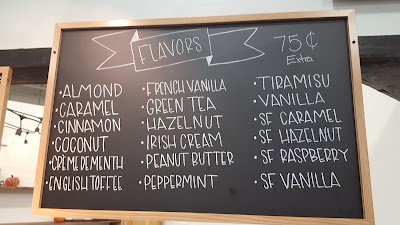 FLAVORS
75¢
Extra
·ALMOND
·CARAMEL
·CINNAMON
·COCONUT
·CRÈME DE MENTH
·ENGLISH TOFFEE
·FRENCH VANILLA
·GREEN TEA
·HAZELNUT
·IRISH CREAM
·PEANUT BUTTER
·PEPPERMINT
·TIRAMISU
·VANILLA
·SF CARAMEL
·SF HAZELNUT
·SF RASPBERRY
·SF VANILLA